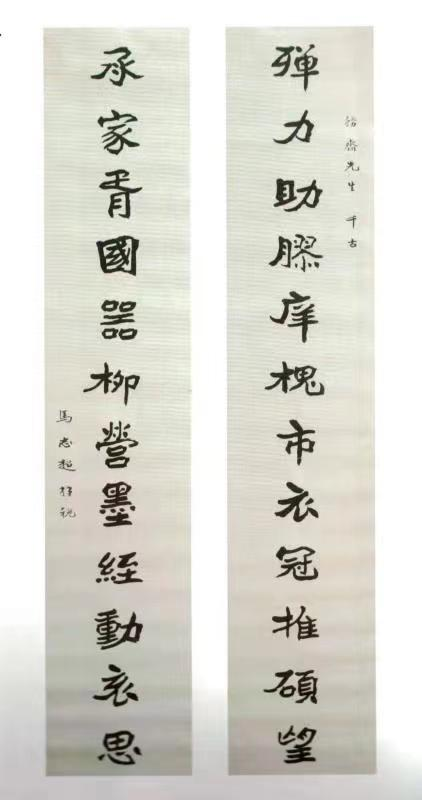 齋先生 千古
殫力助膠庠槐市衣冠推碩望
承家胥國器柳營墨絰動哀思
馬志超拜